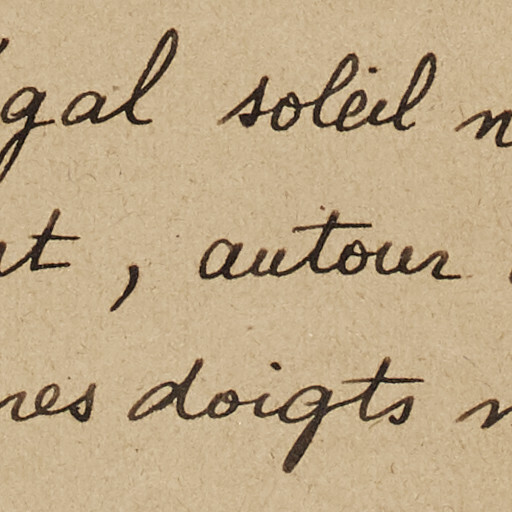 gal soleil
, autour
doigts